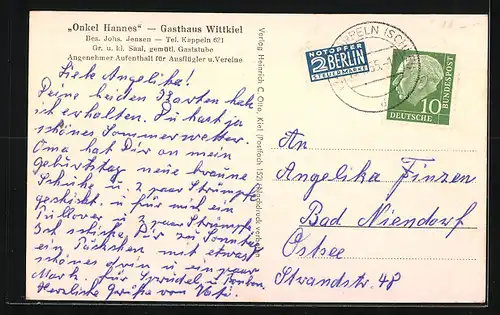 „Onkel Hannes" — Gasthaus Wittkiel
Bes. Johs. Jensen — Tel. Kappeln 671
Gr. u. kl. Saal, gemütl. Gaststube
Angenehmer Aufenthalt für Ausflügler u. Vereine
Liebe Angelika!
Deine beiden Karten habe
ich erhalten. Du hast ja
schönes Sommerwetter.
Oma hat Dir an mein
Geburtstag neue braune
Schuhe u. 2 paar Strümpfe
geschickt u. für mich ein
Pullover u. 2 paar Strümpfe.
Ich schicke Dir zu Sonntag
ein Päckchen mit etwas
schönes drin u. ein paar
Mark für Sprudel u. Bonbon.
Herzliche Grüße von Vati.
Verlag Heinrich C. Otto, Kiel (Postfach 152) (Nachdruck verboten)
NOTOPFER
2 BERLIN
STEUERMARKE
KAPPELN (SCHLEI)
10
DEUTSCHE
BUNDESPOST
An
Angelika Finzen
Bad Niendorf
Ostsee
Strandstr. 48